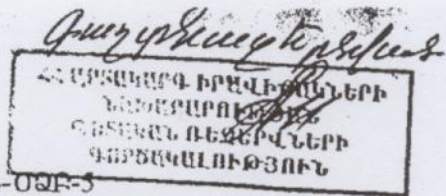 ՀՀ ԱՐՏԱԿԱՐԳ ԻՐԱՎԻՃԱԿՆԵՐԻ
ՆԱԽԱՐԱՐՈՒԹՅԱՆ
ՊԵՏԱԿԱՆ ՌԵԶԵՐՎՆԵՐԻ
ԳՈՐԾԱԿԱԼՈՒԹՅՈՒՆ
-ՕՁԲ-5